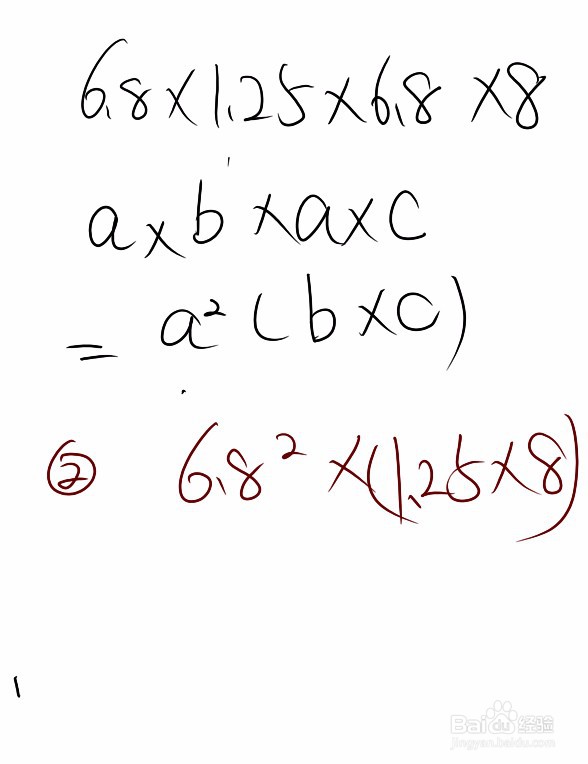 6.8×1.25×6.8×8
a×b×a×c
= a²(b×c)
② 6.8²×(1.25×8)
Baidu经验
jingyan.baidu.com